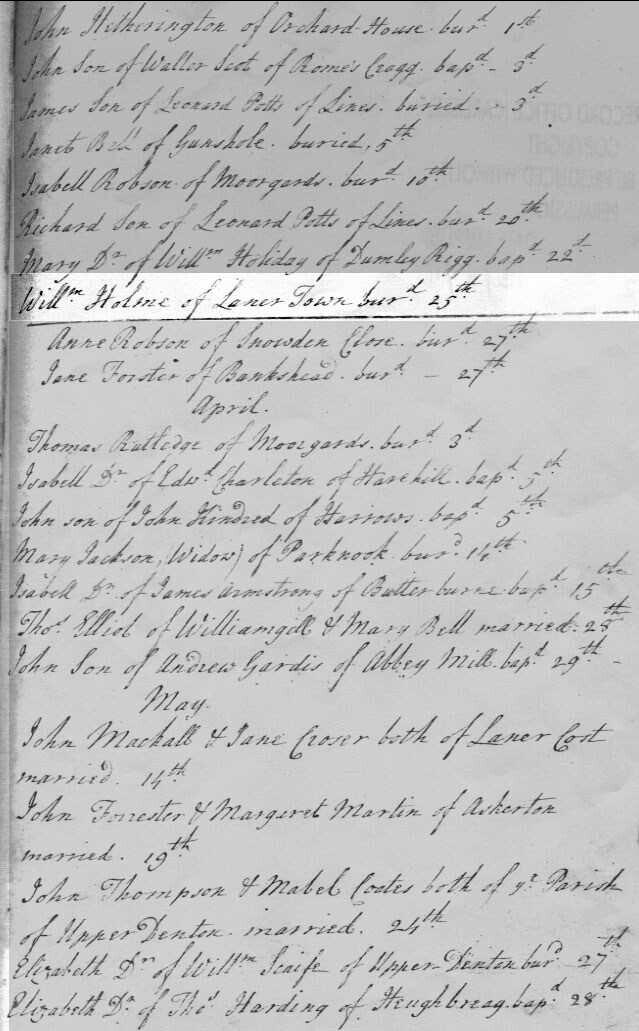 John Hetherington of Orchard House. burd. 1st
John Son of Walter Scot of Rome's Cragg. bapd - 3d
James Son of Leonard Potts of Lines. buried. - 3d
Janet Bell of Gunshole. buried, 5th
Isabell Robson of Moorgards. burd. 10th
Richard Son of Leonard Potts of Lines. burd. 20th
Mary Dr. of Willm Holiday of Dumley Rigg. bapd 22d
Willm Holme of Laner Town burd. 25th
Anne Robson of Snowden Close. burd. 27th
Jane Forster of Bankshead. burd. - 27th
April.
Thomas Rutledge of Moorgards. burd. 3d
Isabell Dr. of Edwd Charleton of Harehill. bapd 5th
John son of John Kindred of Harrows. bapd 5th
Mary Jackson, Widow) of Parknook. burd. 14th
Isabell Dr. of James Armstrong of Butterburne. bapd 15th
Thos. Elliot of Williamgill & Mary Bell married. 28th
John Son of Andrew Gardis of Abbey Mill. bapd 29th -
May.
John Mackall & Jane Croser both of Laner Cost
married. 14th
John Forrester & Margaret Martin of Askerton
married. 19th
John Thompson & Mabel Coates both of yr Parish
of Upper Denton. married. 24th
Elizabeth Dr. of Willm Scaife of Upper-Denton burd. 27th
Elizabeth Dr. of Thos. Harding of Heughbreag. bapd 28th